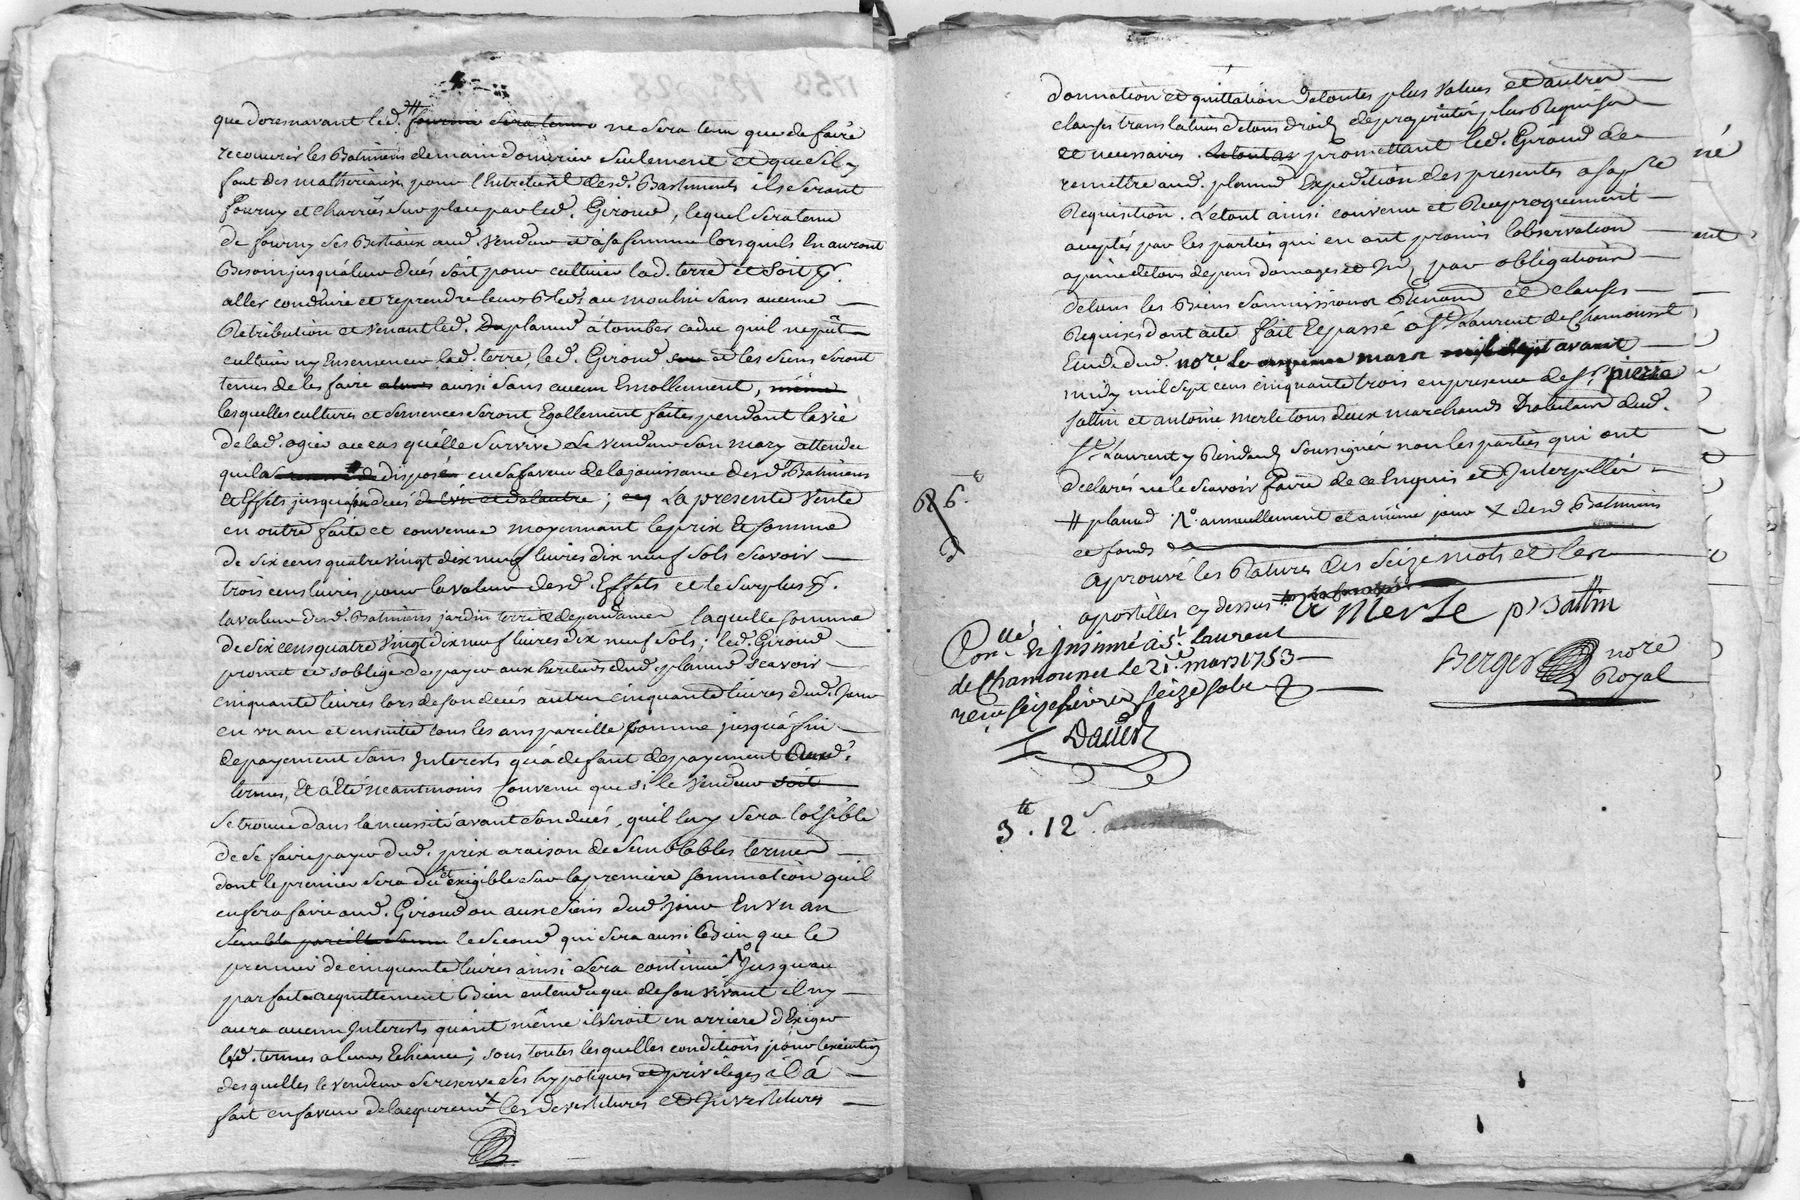 que doresnavant led. # fournir sera tenu ne sera tenu que de faire
recouvrir les Batimens de main d'ouvrier seulement et que s'il y
faut des matheriaux pour l'Entretient desd. Bastiments ils seront
fourny et charriés sur place par led. Giroud, lequel sera tenu
de fourny ses Bestiaux aud. vendeur et à sa femme lorsquils En auront
Besoin jusqu'à leur decés soit pour cultiver lad. terre et soit pr.
aller conduire et reprendre leurs Bleds au moulin sans aucune
Retribution et venant led. Du planud à tomber caduc quil ne pût
cultiver ny Ensemencer lad. terre, led. Giroud et les siens seront
tenus de les faire aussi sans aucun Emollument, même
lesquelles cultures et semences seront Egallement faites pendant la vie
de lad. ogier au cas quélle survive Le vendeur son mary attendu
que la disposé en sa faveur de la jouissance desd. Batimens
et Effets jusqu'à son decés de l'un et de l'autre ; La presente vente
en outre faite et convenue moyennant le prix et somme
de six cens quatre vingt dix neuf livres dix neuf sols scavoir
trois cens livres pour la valeur desd. Effets et le surplus pr.
la valeur desd. Batimens jardin terre & dependances laquelle somme
de six cens quatre vingt dix neuf livres dix neuf sols ; led. Giroud
promet et s'oblige de payer aux heritiers dud. planud scavoir
cinquante livres lors de son decés autres cinquante livres dud. jour
en un an et ensuitte tous les ans pareille somme jusqu'à fin
de payement sans Interests qu'à defaut de payement desd.
termes, Et a Eté neantmoins Convenu que si le vendeur soit
se trouve dans la necessité avant son decés, quil luy sera loisible
de se faire payer dud. prix a raison de semblables termes
dont le premier sera dû et exigible sur la premiere sommation quil
en fera faire aud. Giroud ou aux siens dud. jour En un an
semble pareille somme le second qui sera aussi bien que le
premier de cinquante livres ainsi sera continué No jusqu'au
parfait acquittement Bien entendu que de son vivant il ny
aura aucun Interests quant même il seroit en arriere d'Exiger
led. termes a leurs Echeances ; sous toutes lesquelles conditions pour l'execution
desquelles le vendeur se reserve ses hypoteques et privileges il a
fait en faveur de l'acquereur x les devestitures et Investitures
donnation et quittation de toutes plus values et autres
clauses translatives de tous droits de proprieté plus Requises
et necessaires. promettant led. Giroud de
remettre aud. planud Expedition des presentes a sa pre
Requisition. Letout ainsi convenu et Reciproquement
acceptés par les parties qui en ont promis l'observation
a peine de tous depens domages et Int. par obligation
de tous les Biens soumissions Renon. et clauses
Requises dont acte fait et passé a St. Laurent de Chamousset
Etude dud. nore. le mars avant
midy mil sept cens cinquante trois en presence de Sr. pierre
Jattin et antoine Merle tous deux marchands habitans dud.
St. Laurent y Residans soussignés non les parties qui ont
declarés ne le scavoir faire de ce Enquis et Interpellés
# planud No. annuellement et a même jour x desd Batimens
et fonds
aprouvé les Ratures des seize mots et les
apostilles cy dessus
A Merle p Jattin
Conllé. & Insinué a St. laurent
de Chamousset Le 21e. mars 1753
reçu seize livres seize sols
Berger nore
Royal
Dauer
3tt. 12s.